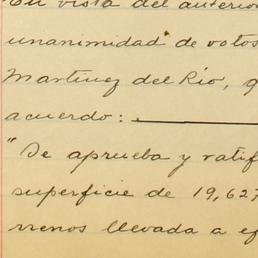 En vista del anterior
unanimidad de votos
Martinez del Río, q
acuerdo:
"Se aprueba y ratif
superficie de 19,627
rrenos llevada a ef